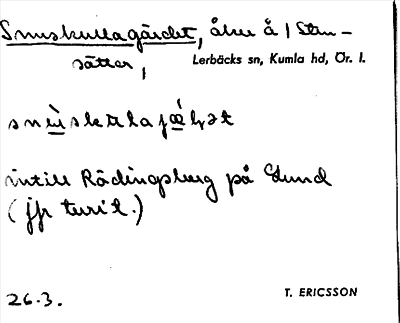 Snuskullagärdet, åker å 1 Sten-
sätter, Lerbäcks sn, Kumla hd, Ör. l.
intill Rödingsberg på Lund
(jfr turi l.)
26.3. T. ERICSSON